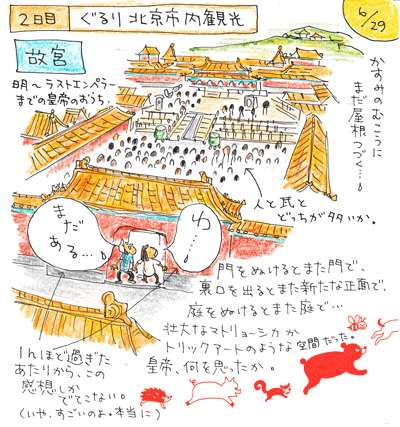 2日目 ぐるり北京市内観光
6/29
故宮
明〜ラストエンペラー
までの皇帝のおうち.
かすみのむこうに
まだ屋根つづく…!
人と瓦と
どっちが多いか。
わ…
まだ
ある…。
門をぬけるとまた門で、
裏口を出るとまた新たな正面で、
庭をぬけるとまた庭で…
壮大なマトリョーシカか
トリックアートのような空間だった。
皇帝、何を思ったか。
1hほど過ぎた
あたりから、この
感想しか
でてこない。
(いや、すごいのよ・本当に)